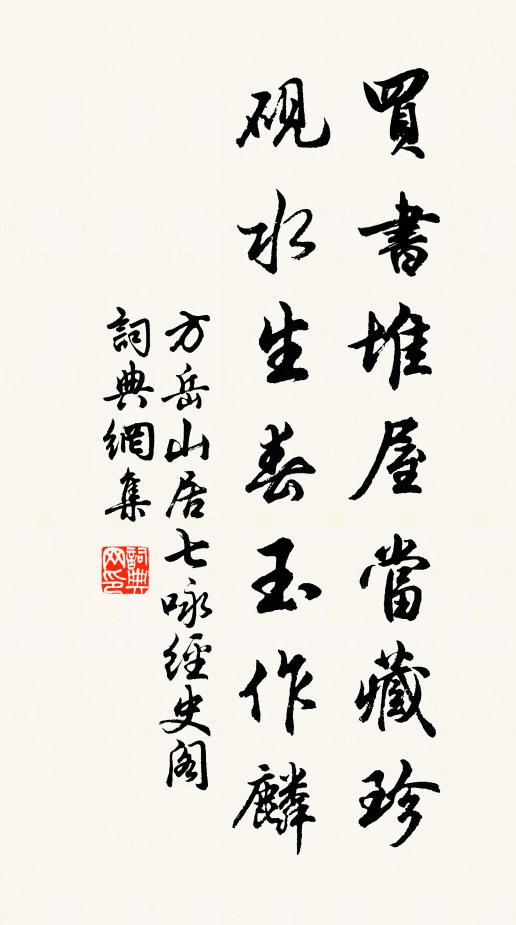 買書堆屋當藏珍
硯水生春玉作麟
方岳山居七咏經史閣
詞典網集
詞典網印